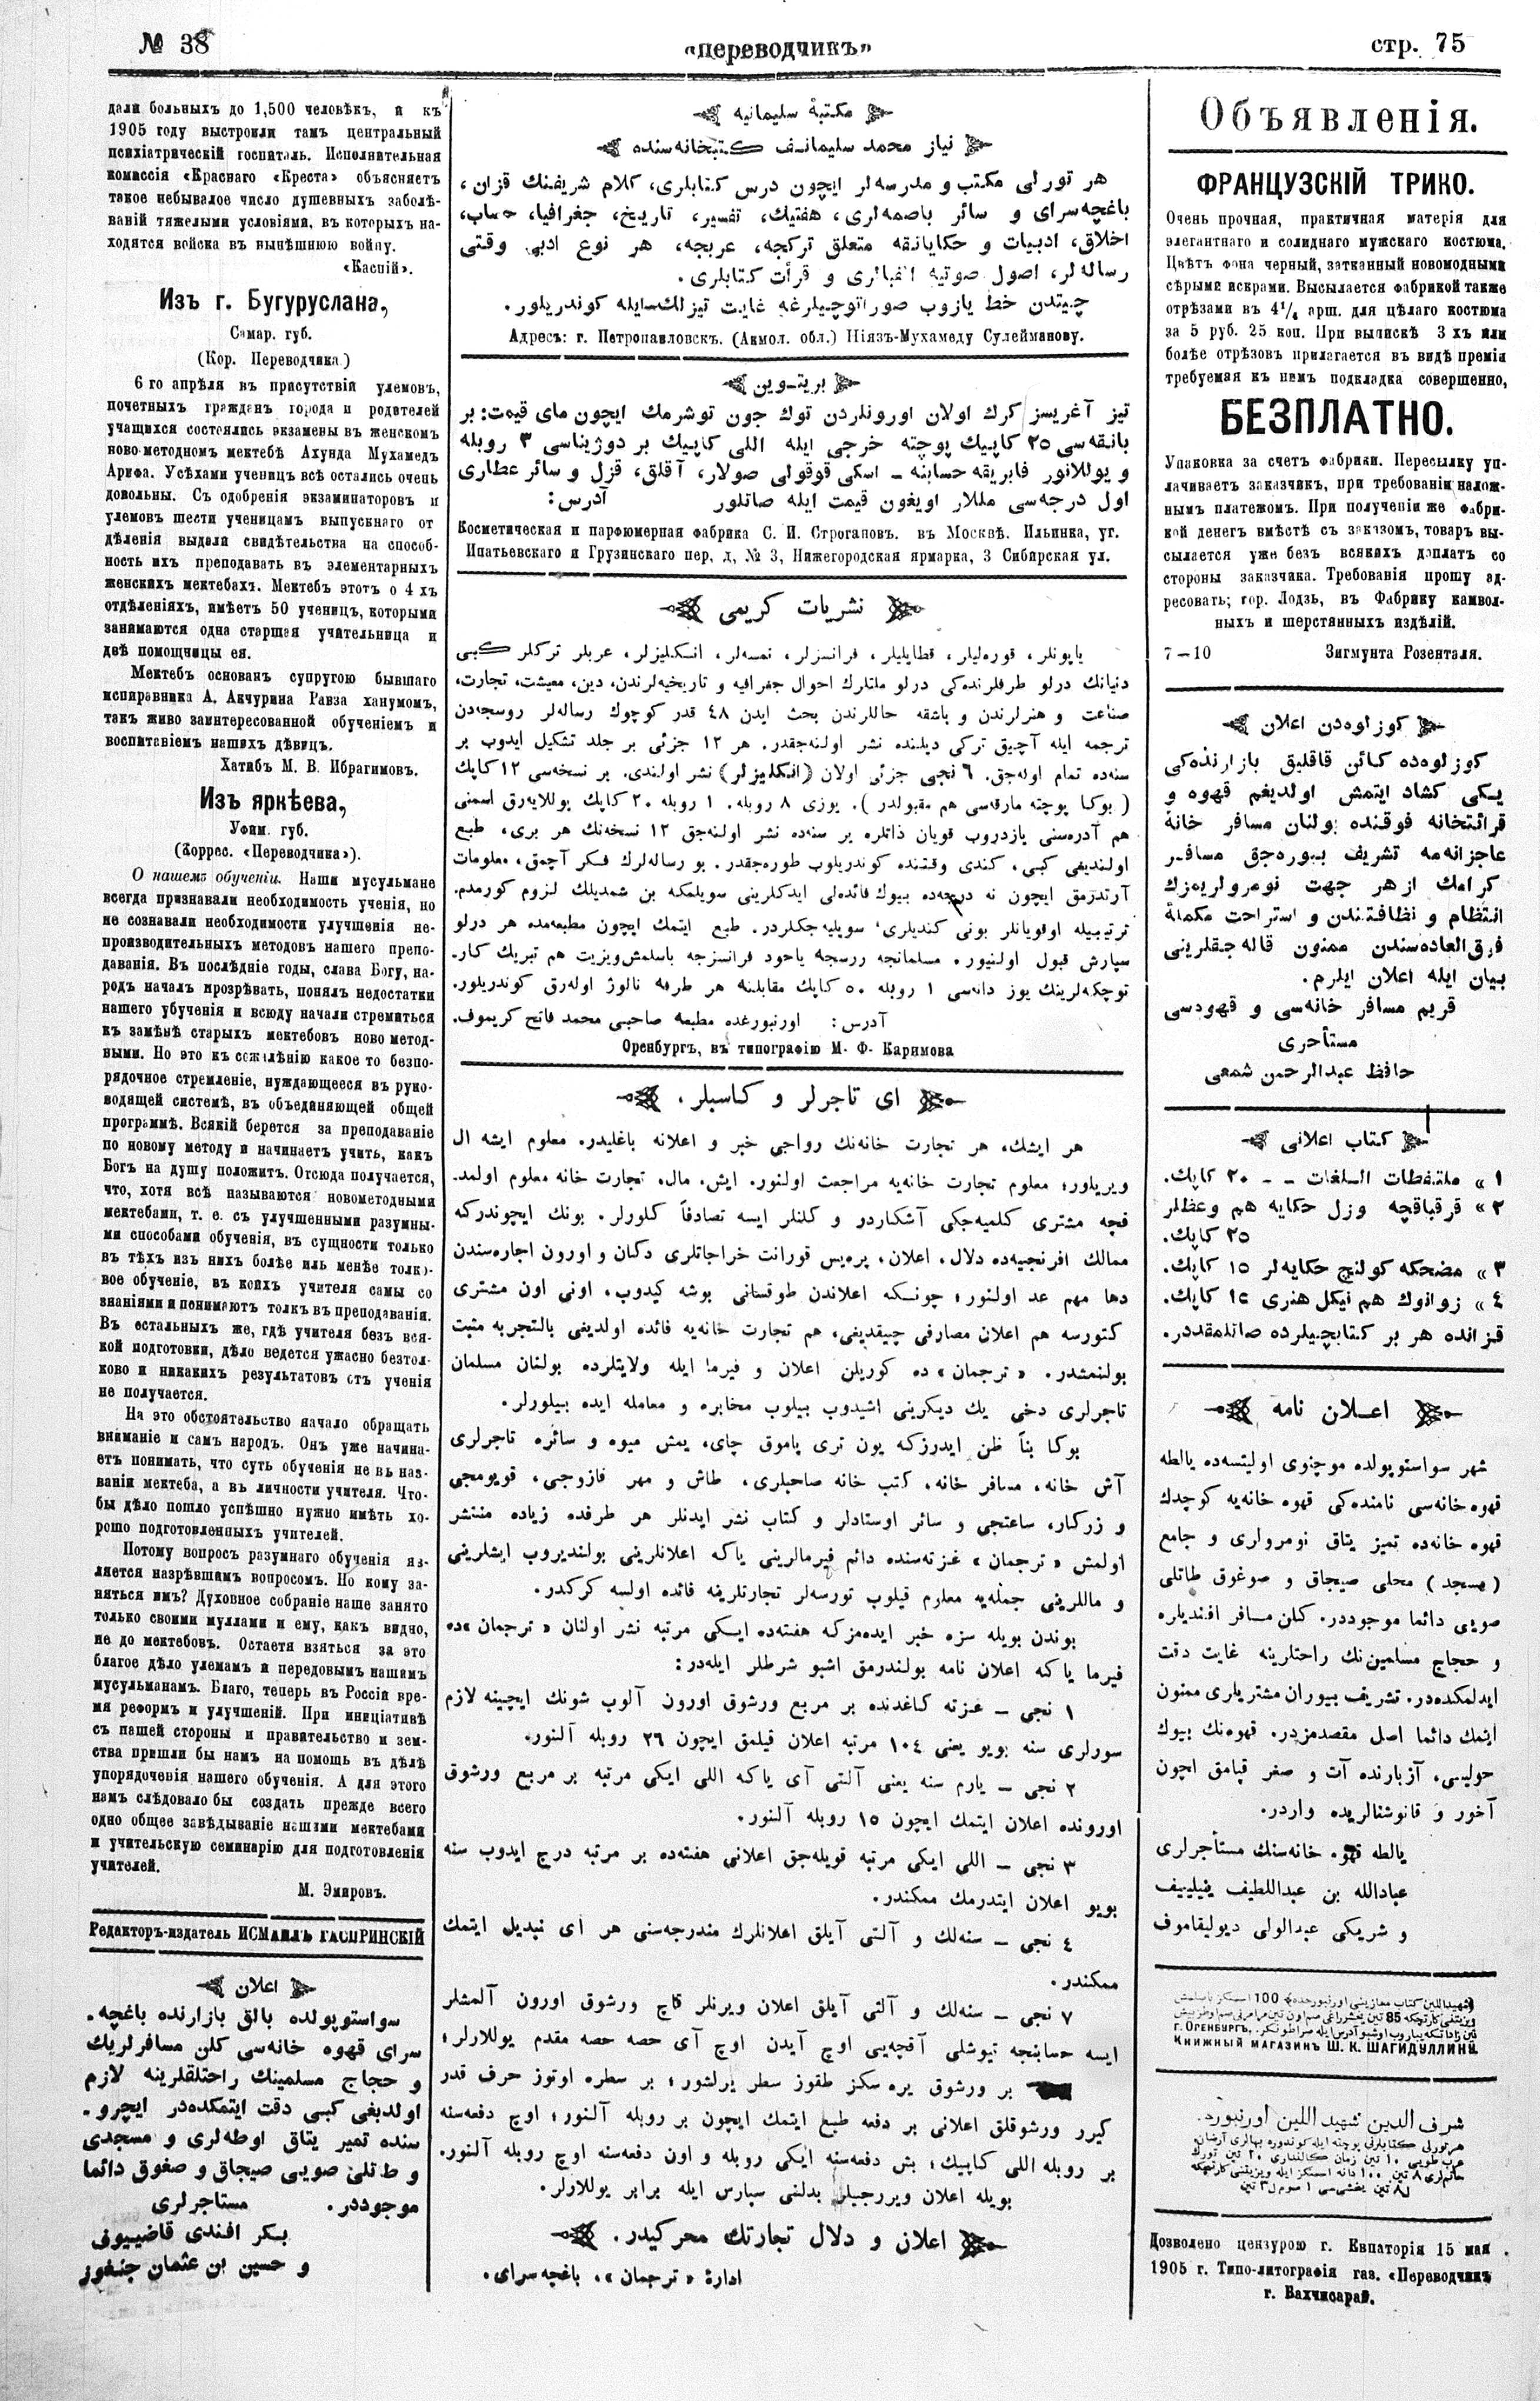 № 38
«Переводчикъ»
стр. 75
дали больныхъ до 1,500 человѣкъ, и къ
1905 году выстроили тамъ центральный
психіатрическій госпиталь. Исполнительная
комассія «Краснаго «Креста» объясняетъ
такое небывалое число душевныхъ заболѣ-
ваній тяжелыми условіями, въ которыхъ на-
ходятся войска въ нынѣшнюю войну.
«Каспій».
Изъ г. Бугуруслана,
Самар. губ.
(Кор. Переводчика)
6 го апрѣля въ присутствіи улемовъ,
почетныхъ гражданъ города и родителей
учащихся состоялись экзамены въ женскомъ
ново-методномъ мектебѣ Ахунда Мухамедъ
Арифа. Усѣхами ученицъ всѣ остались очень
довольны. Съ одобренія экзаминаторовъ и
улемовъ шести ученицамъ выпускнаго от
дѣленія выдали свидѣтельства на способ-
ность ихъ преподавать въ элементарныхъ
женскихъ мектебахъ. Мектебъ этотъ о 4 хъ
отдѣленіяхъ, имѣетъ 50 ученицъ, которыми
занимаются одна старшая учительница и
двѣ помощницы ея.
Мектебъ основанъ супругою бывшаго
исправника А. Акчурина Равза ханумомъ,
такъ живо заинтересованной обученіемъ и
воспитаніемъ нашихъ дѣвицъ.
Хатибъ М. В. Ибрагимовъ.
Изъ яркѣева,
Уфим. губ.
(Коррес. «Переводчика»).
О нашемъ обученіи. Наши мусульмане
всегда признавали необходимость ученія, но
не сознавали необходимости улучшенія не-
производительныхъ методовъ нашего препо-
даванія. Въ послѣдніе годы, слава Богу, на-
родъ началъ прозрѣвать, понялъ недостатки
нашего убученія и всюду начали стремиться
къ замѣнѣ старыхъ мектебовъ ново метод-
ными. Но это къ сожалѣнію какое то безпо-
рядочное стремленіе, нуждающееся въ руко-
водящей системѣ, въ объединяющей общей
программѣ. Всякій берется за преподаваніе
по новому методу и начинаетъ учить, какъ
Богъ на душу положитъ. Отсюда получается,
что, хотя всѣ называются новометодными
мектебами, т. е. съ улучшенными разумны-
ми способами обученія, въ сущности только
въ тѣхъ изъ нихъ болѣе иль менѣе толко-
вое обученіе, въ коихъ учителя самы со
знаніями и понимаютъ толкъ въ преподаваніи.
Въ остальныхъ же, гдѣ учителя безъ вся-
кой подготовки, дѣло ведется ужасно безтол-
ково и никакихъ результатовъ отъ ученія
не получается.
На это обстоятельство начало обращать
вниманіе и самъ народъ. Онъ уже начина-
етъ понимать, что суть обученія не въ наз-
ваніи мектеба, а въ личности учителя. Что-
бы дѣло пошло успѣшно нужно имѣть хо-
рошо подготовленныхъ учителей.
Потому вопросъ разумнаго обученія яв-
ляется назрѣвшимъ вопросомъ. Но кому за-
няться имъ? Духовное собраніе наше занято
только своими муллами и ему, какъ видно,
не до мектебовъ. Остаетя взяться за это
благое дѣло улемамъ и передовымъ нашимъ
мусульманамъ. Благо, теперь въ Россіи вре-
мя реформъ и улучшеній. При иниціативѣ
съ нашей стороны и правительство и зем-
ства пришли бы намъ на помощь въ дѣлѣ
упорядоченія нашего обученія. А для этого
намъ слѣдовало бы создать прежде всего
одно общее завѣдываніе нашими мектебами
и учительскую семинарію для подготовленія
учителей.
М. Эмировъ.
Редакторъ-издатель ИСМАИЛЪ ГАСПРИНСКІЙ
اعلان
سواستوپولده بالق بازارنده باغچه-
سرای قهوه خانه‌سی كلن مسافرلریك
و حجاج مسلمینك راحتلقلرینه لازم
اولدیغی كبی دقت ایتمكده‌در ایچرو-
سنده تمیر یتاق اوطه‌لری و مسجدی
و طتلی صویی صیجاق و صغوق دائما
موجوددر. مستاجرلری
بكر افندی قاضییونی
و حسین بن عثمان جنغوز
مكتبهٔ سلیمانیه
نیاز محمد سلیمانـف كتبخانه‌سنده
هر تورلی مكتب و مدرسه‌لر ایچون درس كتابلری، كلام شریفنك قزان،
باغچه‌سرای و سائر باصمه‌لری، هفتیك، تفسیر، تاریخ، جغرافیا، حساب،
اخلاق، ادبیات و حكایانقه متعلق تركجه، عربجه، هر نوع ادبی وقتی
رساله‌لر، اصول صوتیه الفبالری و قرأت كتابلری.
چیتدن خط یازوب صوراتوچیلرغه غایت تیزلك‌ـایله كوندریلور.
Адресъ: г. Петропавловскъ. (Акмол. обл.) Ніязъ-Мухамеду Сулейманову.
بریتـوین
تیز آغریسز كرك اولان اورونلردن توك جون توشرمك ایچون مای قیمت: بر
بانقه‌سی ٢٥ كاپیك پوچته خرجی ایله اللی كاپیك بر دوزیناسی ٣ روبله
و یوللانور فابریقه حسابنه ـ اسكی قوقولی صولار، آقلق، قزل و سائر عطاری
اول درجه‌سی ماللار اویغون قیمت ایله صانلور آدرس:
Косметическая и парфюмерная фабрика С. И. Строгановъ. въ Москвѣ. Ильинка, уг.
Ипатьевскаго и Грузинскаго пер, д, № 3, Нижегородская ярмарка, 3 Сибирская ул.
نشریات كریمی
یاپونلر، قوره‌لیلر، قطایلیلر، فرانسزلر، نمسه‌لر، انـكلیزلر، عربلر تركلر كبی
دنیانك درلو طرفلرنده‌كی درلو ملتلرك احوال جغرافیه و تاریخیه‌لرندن، دین، معیشت، تجارت،
صناعت و هنرلرندن و باشقه حاللرندن بحث ایدن ٤٨ قدر كوچوك رساله‌لر روسجه‌دن
ترجمه ایله آچیق تركی دیلنده نشر اولنه‌جقدر. هر ١٢ جزئی بر جلد تشكیل ایدوب بر
سنه‌ده تمام اوله‌جق. ٦ نجی جزئی اولان (انكلیزلر) نشر اولندی. بر نسخه‌سی ١٢ كاپك
(بوكا پوچته مارقه‌سی هم مقبولدر). یوزی ٨ روبله. ١ روبله ٢٠ كاپك یوللایه‌رق اسمنی
هم آدره‌سنی یازدروب قویان ذاتلره بر سنه‌ده نشر اولنه‌جق ١٢ نسخه‌نك هر بری، طبع
اولندیغی كبی، كندی وقتنده كوندریلوب طوره‌جقدر. بو رساله‌لرك فـكر آچمق، معلومات
آرتدرمق ایچون نه درجه‌ده بیوك فائده‌لی ایدكلرینی سویلمكه بن شمدیلك لزوم كورمدم.
ترتیبیله اوقویانلر بونی كندیلری سویلیه‌جكلردر. طبع ایتمك ایچون مطبعه‌مده هر درلو
سپارش قبول اولنیور. مسلمانجه روسجه یاخود فرانسزجه باسلمش ویزیت هم تبریك كار-
توچكه‌لرینك یوز دانه‌سی ١ روبله ٥٠ كاپك مقابلنه هر طرفه نالوژ اوله‌رق كوندریلور.
آدرس: اورنبورغده مطبعه صاحبی محمد فاتح كریموف.
Оренбургъ, въ типографію М. Ф. Каримова
ای تاجرلر و كاسبلر،
هر ایشك، هر تجارت خانه‌نك رواجی خبر و اعلانه باغلیدر. معلوم ایشه ال
ویریلور؛ معلوم تجارت خانه‌یه مراجعت اولنور. ایش، مال، تجارت خانه معلوم اولمد-
قچه مشتری كلمیه‌جكی آشكاردو و كلنلر ایسه تصادفاً كلورلر. بونك ایچوندركه
ممالك افرنجیه‌ده دلال، اعلان، پره‌یس قورانت خراجاتلری دكان و اورون اجاره‌سندن
دها مهم عد اولنور؛ چونـكه اعلاندن طوقسانی بوشه كیدوب، اونی اون مشتری
كتورسه هم اعلان مصارفی چیقدیغی، هم تجارت خانه‌یه فائده اولدیغی بالتجربه مثبت
بولنمشدر. «ترجمان» ده كوریلن اعلان و فیرما ایله ولایتلرده بولنان مسلمان
تاجرلری دخی یك دیكرینی اشیدوب بیلوب مخابره و معامله ایده بیلورلر.
بوكا بناً ظن ایدرزكه یون تری پاموق چای، یمش میوه و سائره تاجرلری
آش خانه، مسافر خانه، كتب خانه صاحبلری، طاش و مهر قازوجی، قویومجی
و زركار، ساعتجی و سائر اوستادلر و كتاب نشر ایدنلر هر طرفده زیاده منتشر
اولمش «ترجمان» غزته‌سنده دائم فیرمالرینی یاكه اعلانلرینی بولندیروب ایشلرینی
و ماللرینی جمله‌یه معلوم قیلوب تورسه‌لر تجارتلرینه فائده اولسه كركدر.
بوندن بویله سزه خبر ایده‌مزكه هفته‌ده ایـكی مرتبه نشر اولنان «ترجمان»ده
فیرما یاكه اعلان نامه بولندرمق اشبو شرطلر ایله‌در:
١ نجی ـ غزته كاغدنده بر مربع ورشوق اورون آلوب شونك ایچینه لازم
سوزلری سنه بویو یعنی ١٠٤ مرتبه اعلان قیلمق ایچون ٢٦ روبله آلنور.
٢ نجی ـ یارم سنه یعنی آلتی آی یاكه اللی ایكی مرتبه بر مربع ورشوق
اورونده اعلان ایتمك ایچون ١٥ روبله آلنور.
٣ نجی ـ اللی ایكی مرتبه قویله‌جق اعلانی هفته‌ده بر مرتبه درج ایدوب سنه
بویو اعلان ایتدرمك ممكندر.
٤ نجی ـ سنه‌لك و آلتی آیلق اعلانلرك مندرجه‌سنی هر آی تبدیل ایتمك
ممكندر.
٧ نجی ـ سنه‌لك و آلتی آیلق اعلان ویرنلر قاچ ورشوق اورون آلمشلر
ایسه حسابنجه تیوشلی آقچه‌یی اوچ آیدن اوچ آی حصه حصه مقدم یوللارلر؛
بر ورشوق یره سكز طقوز سطر یرلشور؛ بر سطره اوتوز حرف قدر
كیرر ورشوقلق اعلانی بر دفعه طبع ایتمك ایچون بر روبله آلنور؛ اوچ دفعه‌سنه
بر روبله اللی كاپیك؛ بش دفعه‌سنه ایكی روبله و اون دفعه‌سنه اوچ روبله آلنور.
بویله اعلان ویررجیلر بدلنی سپارس ایله برابر یوللارلر.
اعلان و دلال تجارتك محركیدر.
ادارهٔ «ترجمان»، باغچه سرای.
Объявленія.
ФРАНЦУЗСКІЙ ТРИКО.
Очень прочная, практичная матерія для
элегантнаго и солиднаго мужскаго костюма.
Цвѣтъ фона черный, затканный новомодными
сѣрыми искрами. Высылается фабрикой также
отрѣзами въ 4¹/₄ арш. для цѣлаго костюма
за 5 руб. 25 коп. При выпискѣ 3 хъ или
болѣе отрѣзовъ прилагается въ видѣ преміи
требуемая къ нимъ подкладка совершенно,
БЕЗПЛАТНО.
Упаковка за счетъ фабрики. Пересылку уп-
лачиваетъ заказчикъ, при требованіи налож-
нымъ платежомъ. При полученіи же фабри-
кой денегъ вмѣстѣ съ заказомъ, товаръ вы-
сылается уже безъ всякихъ доплатъ со
стороны заказчика. Требованія прошу ад-
ресовать; гор. Лодзь, въ Фабрику камвол-
ныхъ и шерстянныхъ издѣлій.
7—10 Зигмунта Розенталя.
كوزلوه‌دن اعلان
كوزلوه‌ده كائن قاقلیق بازارنده‌كی
یـكی كشاد ایتمش اولدیغم قهوه و
قرائتخانه فوقنده بولنان مسافر خانهٔ
عاجزانه‌مه تشریف بیوره‌جق مسافر
كرامك ازهر جهت نومرولریمزك
انتظام و نظافتندن و استراحت مكملهٔ
فوق العاده‌سندن ممنون قاله‌جقلرینی
بیان ایله اعلان ایلرم.
قریم مسافر خانه‌سی و قهوه‌سی
مستأجری
حافظ عبدالرحمن شمعی
كتاب اعلانی
١ » ملتقطات السلغات - - ٢٠ كاپك.
٢ » قرقیاقچه وزل حكایه هم وعظلر
٢٥ كاپك.
٣ » مضحكه كولنچ حكایه‌لر ١٥ كاپك.
٤ » زوانوك هم نیكل هنری ١٥ كاپك.
قزانده هر بر كتابچیلرده صاتلمقده‌در.
اعـلان نامه
شهر سواستوپولده موچنوی اولیتسه‌ده یالطه
قهوه خانه‌سی نامنده‌كی قهوه خانه‌یه كوچدك
قهوه خانه‌ده تمیز یتاق نومرولری و جامع
(مسجد) محلی صیجاق و صوغوق طاتلی
صویی دائما موجوددر. كلن مسافر افندیلره
و حجاج مسلمین‌نك راحتلرینه غایت دقت
ایدلمكده‌در. تشریف بیوران مشتریلری ممنون
ایتمك دائما اصل مقصدمزدر. قهوه‌نك بیوك
حولیسی، آزبارنده آت و صغر قپامق ایچون
آخور و قانوشنالریده واردر.
یالطه قهوه خانه‌سنك مستأجرلری
عبادالله بن عبداللطیف
و شریكی عبدالولی دیولیقاموف
г. Оренбургъ,
Книжный магазинъ Ш. К. ШАГИДУЛЛИНЪ
شرف الدین شهید اللین اورنبورد.
Дозволено цензурою г. Евпаторія 15 мая
1905 г. Типо-литографія газ. «Переводчикъ
г. Бахчисарай.